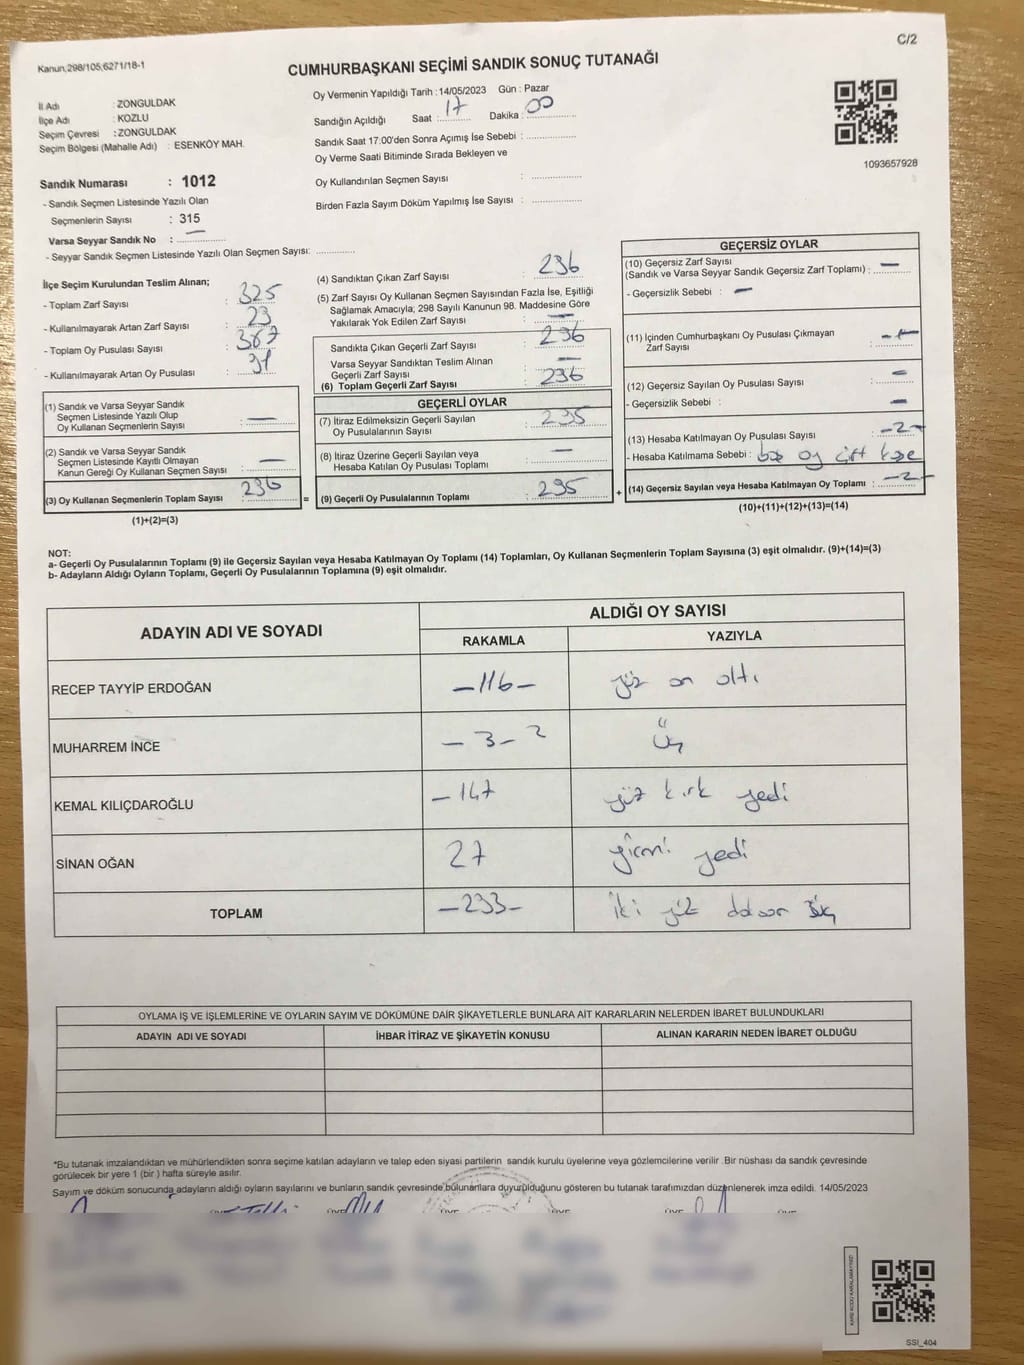 C/2
Kanun,298/105,6271/18-1
CUMHURBAŞKANI SEÇİMİ SANDIK SONUÇ TUTANAĞI
İl Adı : ZONGULDAK
İlçe Adı : KOZLU
Seçim Çevresi : ZONGULDAK
Seçim Bölgesi (Mahalle Adı) : ESENKÖY MAH.
Oy Vermenin Yapıldığı Tarih : 14/05/2023 Gün : Pazar
Sandığın Açıldığı Saat : 17 Dakika : 00
Sandık Saat 17:00'den Sonra Açımış İse Sebebi :
Oy Verme Saati Bitiminde Sırada Bekleyen ve
Oy Kullandırılan Seçmen Sayısı :
Birden Fazla Sayım Döküm Yapılmış İse Sayısı :
1093657928
Sandık Numarası : 1012
- Sandık Seçmen Listesinde Yazılı Olan
Seçmenlerin Sayısı : 315
Varsa Seyyar Sandık No : —
- Seyyar Sandık Seçmen Listesinde Yazılı Olan Seçmen Sayısı:
İlçe Seçim Kurulundan Teslim Alınan;
- Toplam Zarf Sayısı : 325
- Kullanılmayarak Artan Zarf Sayısı : 23
- Toplam Oy Pusulası Sayısı : 367
- Kullanılmayarak Artan Oy Pusulası : 31
(1) Sandık ve Varsa Seyyar Sandık
Seçmen Listesinde Yazılı Olup
Oy Kullanan Seçmenlerin Sayısı : —
(2) Sandık ve Varsa Seyyar Sandık
Seçmen Listesinde Kayıtlı Olmayan
Kanun Gereği Oy Kullanan Seçmen Sayısı : —
(3) Oy Kullanan Seçmenlerin Toplam Sayısı : 236
(1)+(2)=(3)
(4) Sandıktan Çıkan Zarf Sayısı : 236
(5) Zarf Sayısı Oy Kullanan Seçmen Sayısından Fazla İse, Eşitliği
Sağlamak Amacıyla; 298 Sayılı Kanunun 98. Maddesine Göre
Yakılarak Yok Edilen Zarf Sayısı : —
Sandıkta Çıkan Geçerli Zarf Sayısı : 236
Varsa Seyyar Sandıktan Teslim Alınan
Geçerli Zarf Sayısı : —
(6) Toplam Geçerli Zarf Sayısı : 236
GEÇERLİ OYLAR
(7) İtiraz Edilmeksizin Geçerli Sayılan
Oy Pusulalarının Sayısı : 235
(8) İtiraz Üzerine Geçerli Sayılan veya
Hesaba Katılan Oy Pusulası Toplamı : —
= (9) Geçerli Oy Pusulalarının Toplamı : 235 +
GEÇERSİZ OYLAR
(10) Geçersiz Zarf Sayısı
(Sandık ve Varsa Seyyar Sandık Geçersiz Zarf Toplamı) : —
- Geçersizlik Sebebi : —
(11) İçinden Cumhurbaşkanı Oy Pusulası Çıkmayan
Zarf Sayısı :
(12) Geçersiz Sayılan Oy Pusulası Sayısı : —
- Geçersizlik Sebebi : —
(13) Hesaba Katılmayan Oy Pusulası Sayısı : -2-
- Hesaba Katılmama Sebebi : oy çift
(14) Geçersiz Sayılan veya Hesaba Katılmayan Oy Toplamı : -2-
(10)+(11)+(12)+(13)=(14)
NOT:
a- Geçerli Oy Pusulalarının Toplamı (9) ile Geçersiz Sayılan veya Hesaba Katılmayan Oy Toplamı (14) Toplamları, Oy Kullanan Seçmenlerin Toplam Sayısına (3) eşit olmalıdır. (9)+(14)=(3)
b- Adayların Aldığı Oyların Toplamı, Geçerli Oy Pusulalarının Toplamına (9) eşit olmalıdır.
ADAYIN ADI VE SOYADI
ALDIĞI OY SAYISI
RAKAMLA YAZIYLA
RECEP TAYYİP ERDOĞAN -116- yüz on altı
MUHARREM İNCE - 3 - 2 Üç
KEMAL KILIÇDAROĞLU - 147 yüz kırk yedi
SİNAN OĞAN 27 yirmi yedi
TOPLAM -233- iki yüz üç
OYLAMA İŞ VE İŞLEMLERİNE VE OYLARIN SAYIM VE DÖKÜMÜNE DAİR ŞİKAYETLERLE BUNLARA AİT KARARLARIN NELERDEN İBARET BULUNDUKLARI
ADAYIN ADI VE SOYADI İHBAR İTİRAZ VE ŞİKAYETİN KONUSU ALINAN KARARIN NEDEN İBARET OLDUĞU
*Bu tutanak imzalandıktan ve mühürlendikten sonra seçime katılan adayların ve talep eden siyasi partilerin sandık kurulu üyelerine veya gözlemcilerine verilir .Bir nüshası da sandık çevresinde
görülecek bir yere 1 (bir ) hafta süreyle asılır.
Sayım ve döküm sonucunda adayların aldığı oyların sayılarını ve bunların sandık çevresinde bulunanlara duyurulduğunu gösteren bu tutanak tarafımızdan düzenlenerek imza edildi. 14/05/2023
SSİ_404